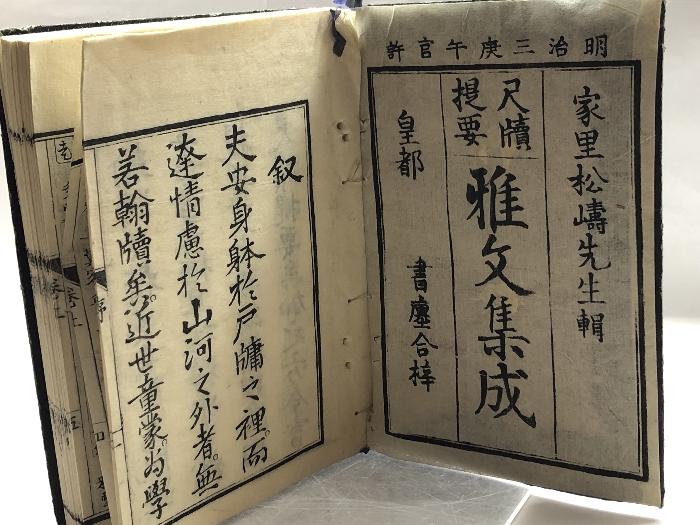 明治三庚午官許
家里松嶹先生輯
尺牘
提要
雅文集成
皇都
書廛合梓
叙
夫安身躰於戸牗之裡。而
遼情慮於山河之外者。無
若翰牘牟。近世童蒙。為學